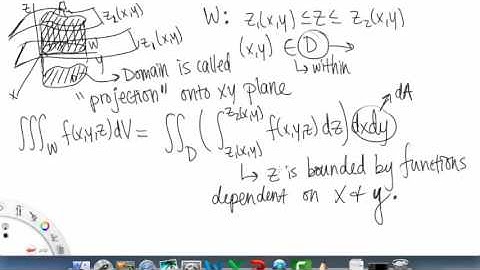 z
z₂(x,y)
W: z₁(x,y) ≤ z ≤ z₂(x,y)
W
z₁(x,y)
(x,y) ∈ D →
y
D
↳ within
x
→ Domain is called
"projection" onto xy plane
∭_W f(x,y,z)dV = ∬_D (∫_{z₁(x,y)}^{z₂(x,y)} f(x,y,z) dz) dxdy
dA
↳ z is bounded by functions
dependent on x & y.